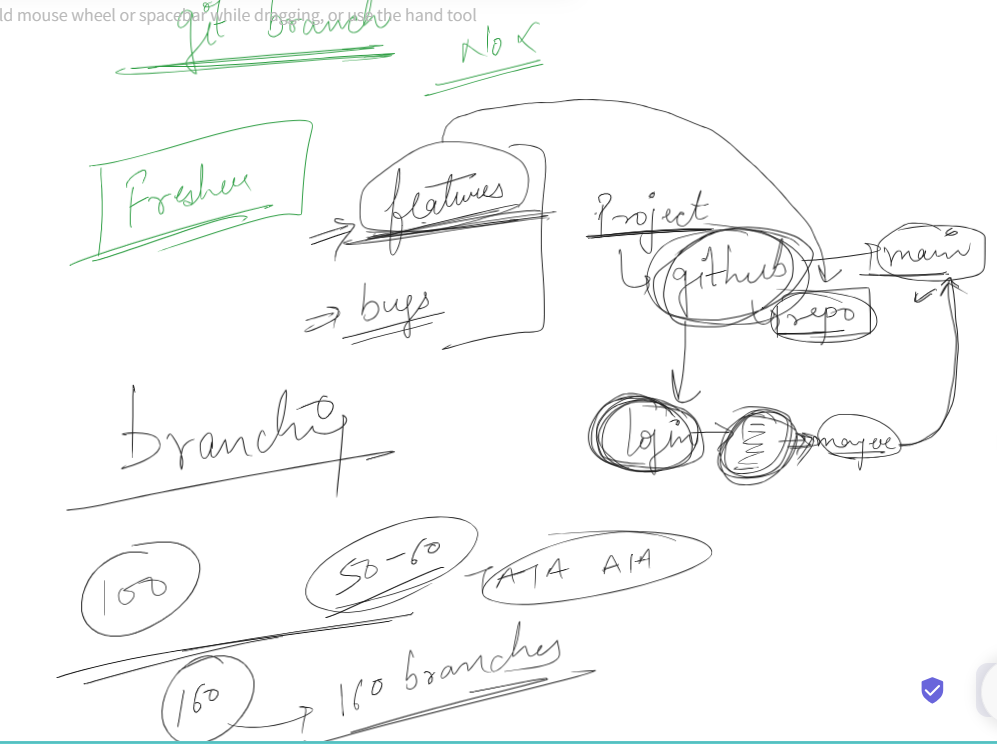 ld mouse wheel or spacebar while dragging, or use the hand tool
git branch
Fresher
features
bugs
Project
github
main
repo
login
branching
100
50-60
TATA AIA
160
160 branches